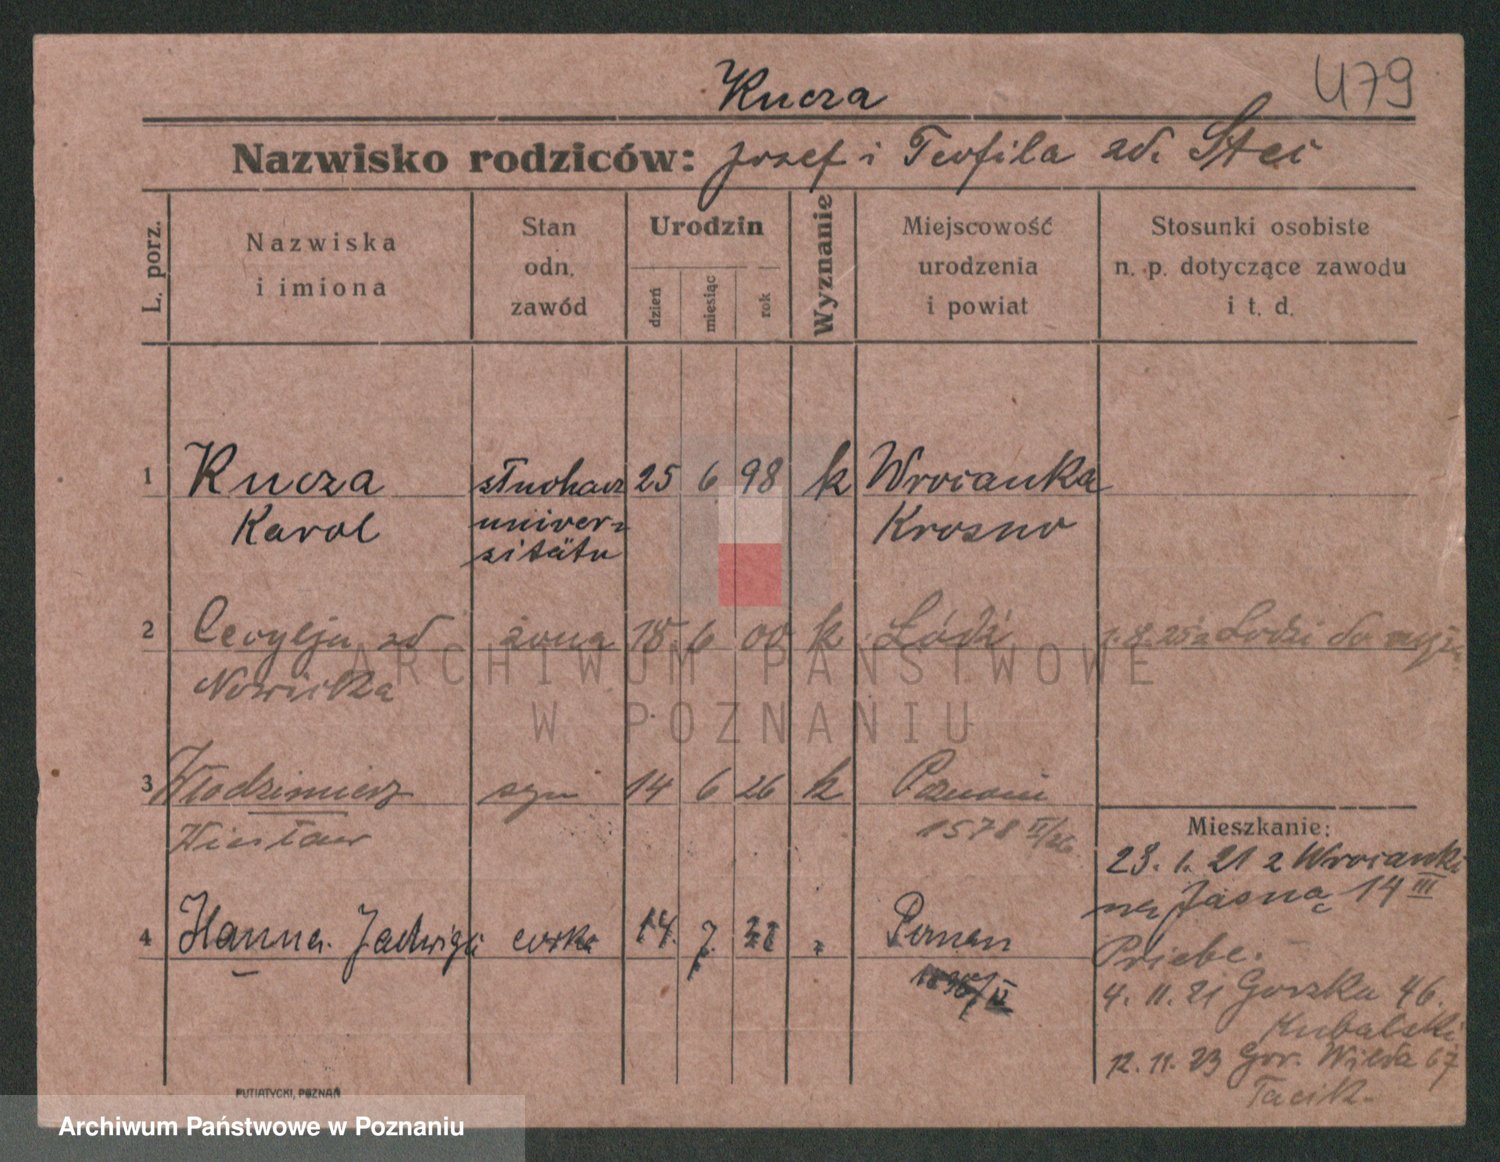 Kucza
479
Nazwisko rodziców: Jozef i Teofila zd. Steć
L. porz.
Nazwiska
i imiona
Stan
odn.
zawód
Urodzin
dzień
miesiąc
rok
Wyznanie
Miejscowość
urodzenia
i powiat
Stosunki osobiste
n. p. dotyczące zawodu
i t. d.
1 Kucza słuchacz 25 6 98 k Wrocanka
Karol uniwer-
zitätu Krosno
2 Cecylja zd żona 6 00 k Łódź z Łodzi do męża
Nowicka
3 Włodzimierz syn 14 6 26 k Poznań
Wiesław 1578 II/26
Mieszkanie:
23. 1. 21 z Wrocanki
na Jasną 14 III
4 Hanna Jadwiga corka 14. 7. Poznan
Priebe.
4. 11. 21 Gorzka 46.
Kubalski
12. 11. 23 Gor. Wilda 67
Tacik.
PUTIATYCKI, POZNAŃ
ARCHIWUM PAŃSTWOWE
W POZNANIU
Archiwum Państwowe w Poznaniu